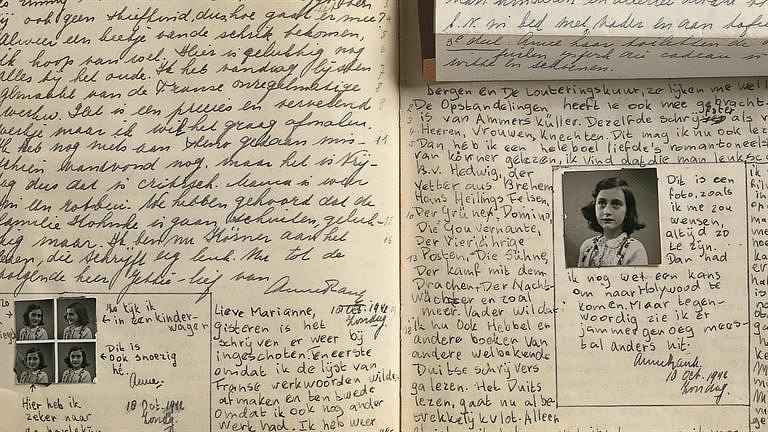 zij ook geen stiefkind, dus hoe gaat er mee?
Alweer een beetje van de schrik bekomen,
ik hoop van wel. Hier is gelukkig nog
alles bij het oude. Ik heb vandaag lijsten
gemaakt van de Franse onregelmatige
werkw. Het is een precies en vervelend
werkje maar ik wil het graag afmaken.
Ik heb nog niets aan steno gedaan mis-
schien vanavond nog, maar het is vrij-
ag dus dat is critisch. Mama is weer
familie
maar. Ik ben nu Körner aan het
lezen, die schrijft erg leuk. Nu tot de
volgende keer Jettie-lief van
Anne Frank
Nu kijk ik
in een kinder-
wagen
Dit is
ook snoezig
hè.
Anne.
Hier heb ik
zeker naar
18 Oct. 1942
Zondag.
Lieve Marianne,
18 Oct. 1942
Zondag.
gisteren is het
schrijven er weer bij
ingeschoten. Ten eerste
omdat ik de lijst van
Franse werkwoorden wilde
afmaken en ten twede
omdat ik ook nog ander
werk had. Ik heb weer
in bed met vader en aan
3e deel
bergen en De Louteringskuur, zo lijken me wel
De Opstandelingen heeft ie ook mee gebracht
is van Ammers Küller. Dezelfde schrijfster als v
Heeren, Vrouwen, Knechten. Dit mag ik nu ook lez
Dan heb ik een heleboel liefde's romantoneels
van körner gelezen, ik vind dat die man leuk sc
B.v. Hedwig, der
Vetter aus Bremen
Hans Heilings Felsen,
Der Grünen Domino,
Die Gouvernante,
Der Vierjährige
Posten, Die Sühne,
Der Kampf mit dem
Drachen, Der Nacht-
wächter en zoal
meer. Vader wil dat
ik nu ook Hebbel en
andere boeken van
andere welbekende
Duitse schrijvers
ga lezen. Het Duits
lezen, gaat nu al be-
trekkelijk vlot. Alleen
Dit is een
foto, zoals
ik me zou
wensen,
altijd zo
te zijn.
Dan had
ik nog wel een kans
om naar Holywood te
komen. Maar tegen-
woordig zie ik er
jammer genoeg mees-
tal anders uit.
Anne Frank.
18 Oct. 1942
Zondag.